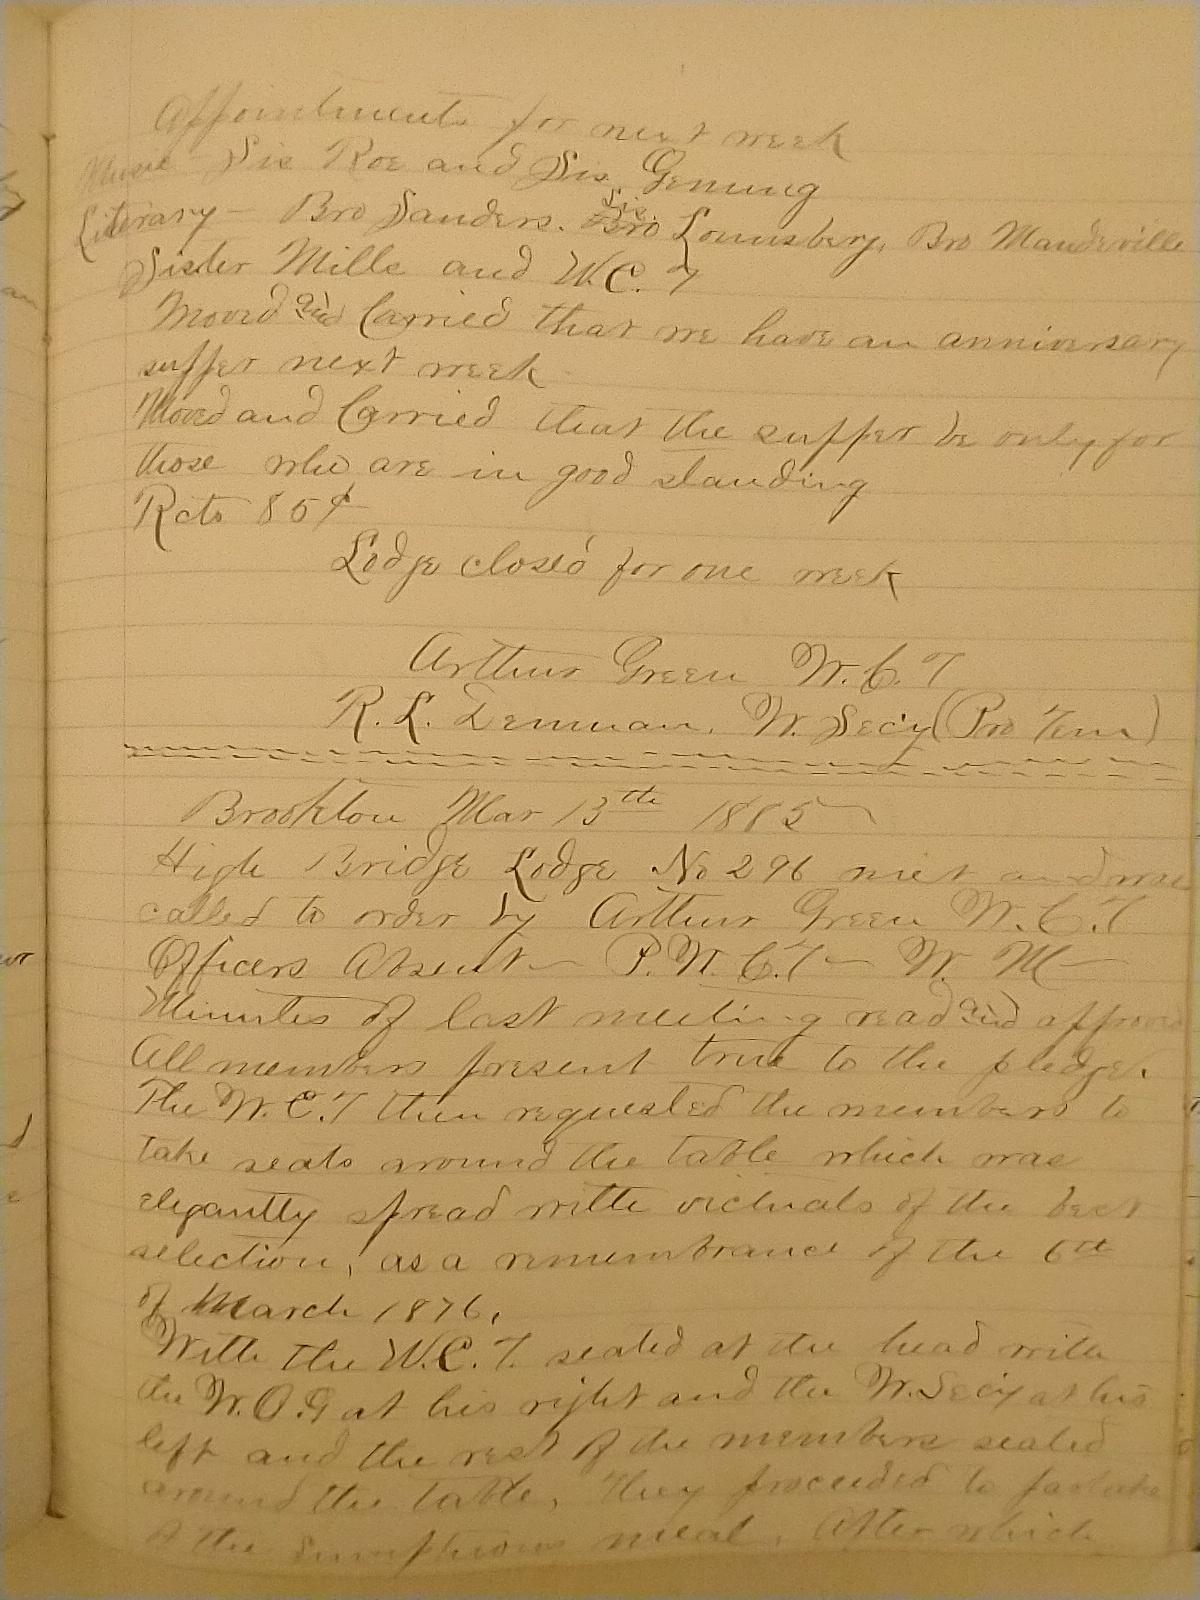 Appointments for next week
Music - Sis Roe and Sis Genung
Literary - Bro Sanders. Sis. Bro Lounsbery, Bro Mandeville
Sister Mills and W.C.T
Moved and Carried that we have an anniversary
supper next week
Moved and Carried that the supper be only for
those who are in good standing
Rcts 85¢
Lodge closed for one week
Arthur Green W.C.T
R. L. Denman. W. Secy (Pro Tem)
Brookton Mar 13th 1885
High Bridge Lodge No 296 met and was
called to order by Arthur Green W.C.T
Officers Absent - P.W.C.T - W. M -
Minutes of last meeting read and approved
All members present true to the pledge.
The W.C.T then requested the members to
take seats around the table which was
elegantly spread with victuals of the best
selection, as a remembrance of the 6th
of March 1876.
With the W.C.T. seated at the head with
the W.O.G at his right and the W. Secy at his
left and the rest of the members seated
around the table, they proceeded to partake
of the sumptuous meal. After which